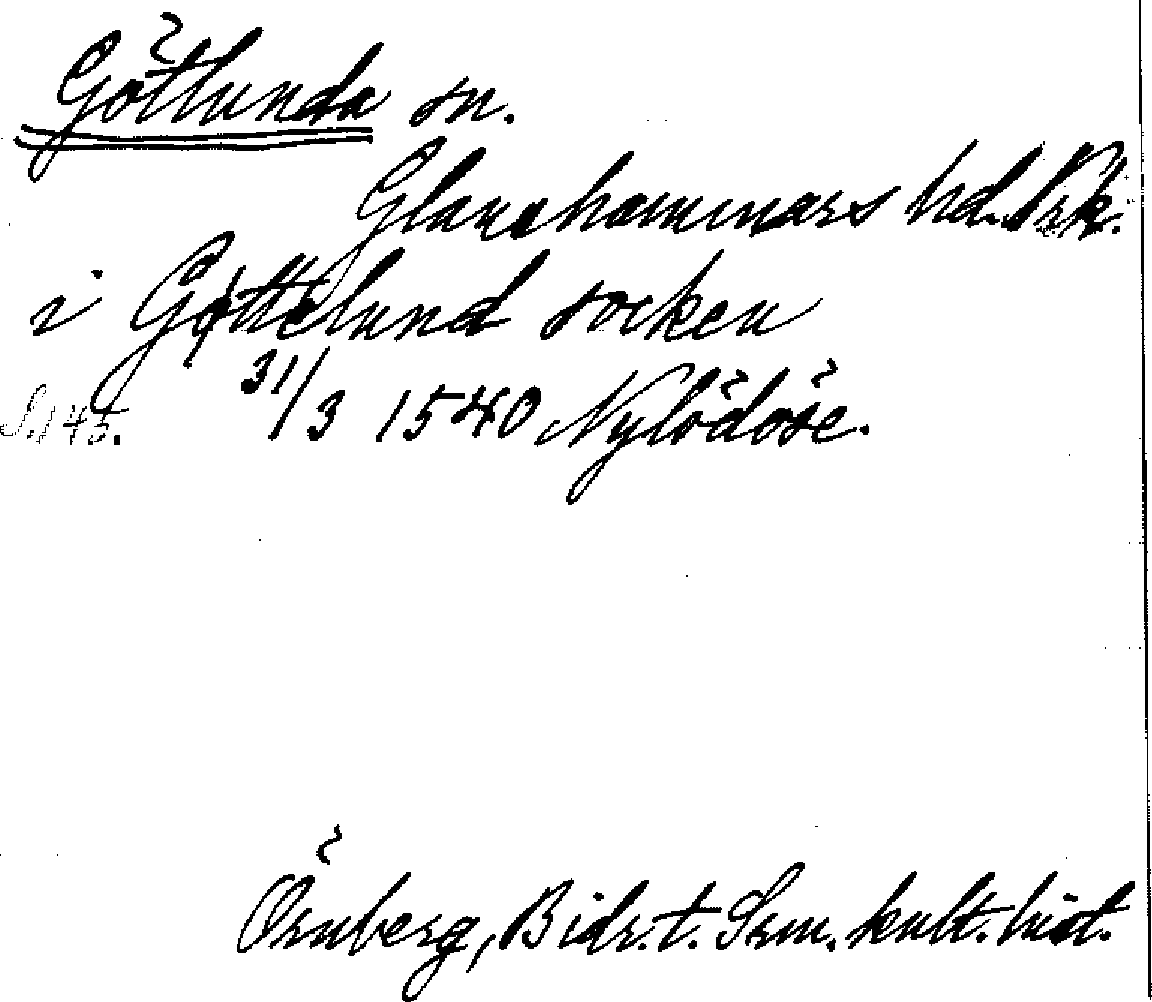 Götlunda sn.
Glanshammars hd. Nrk.
i Gøttelund socken
S. 145. 31/3 1540 Nylödöse.
Örnberg, Bidr. t. Srm. kult. hist.